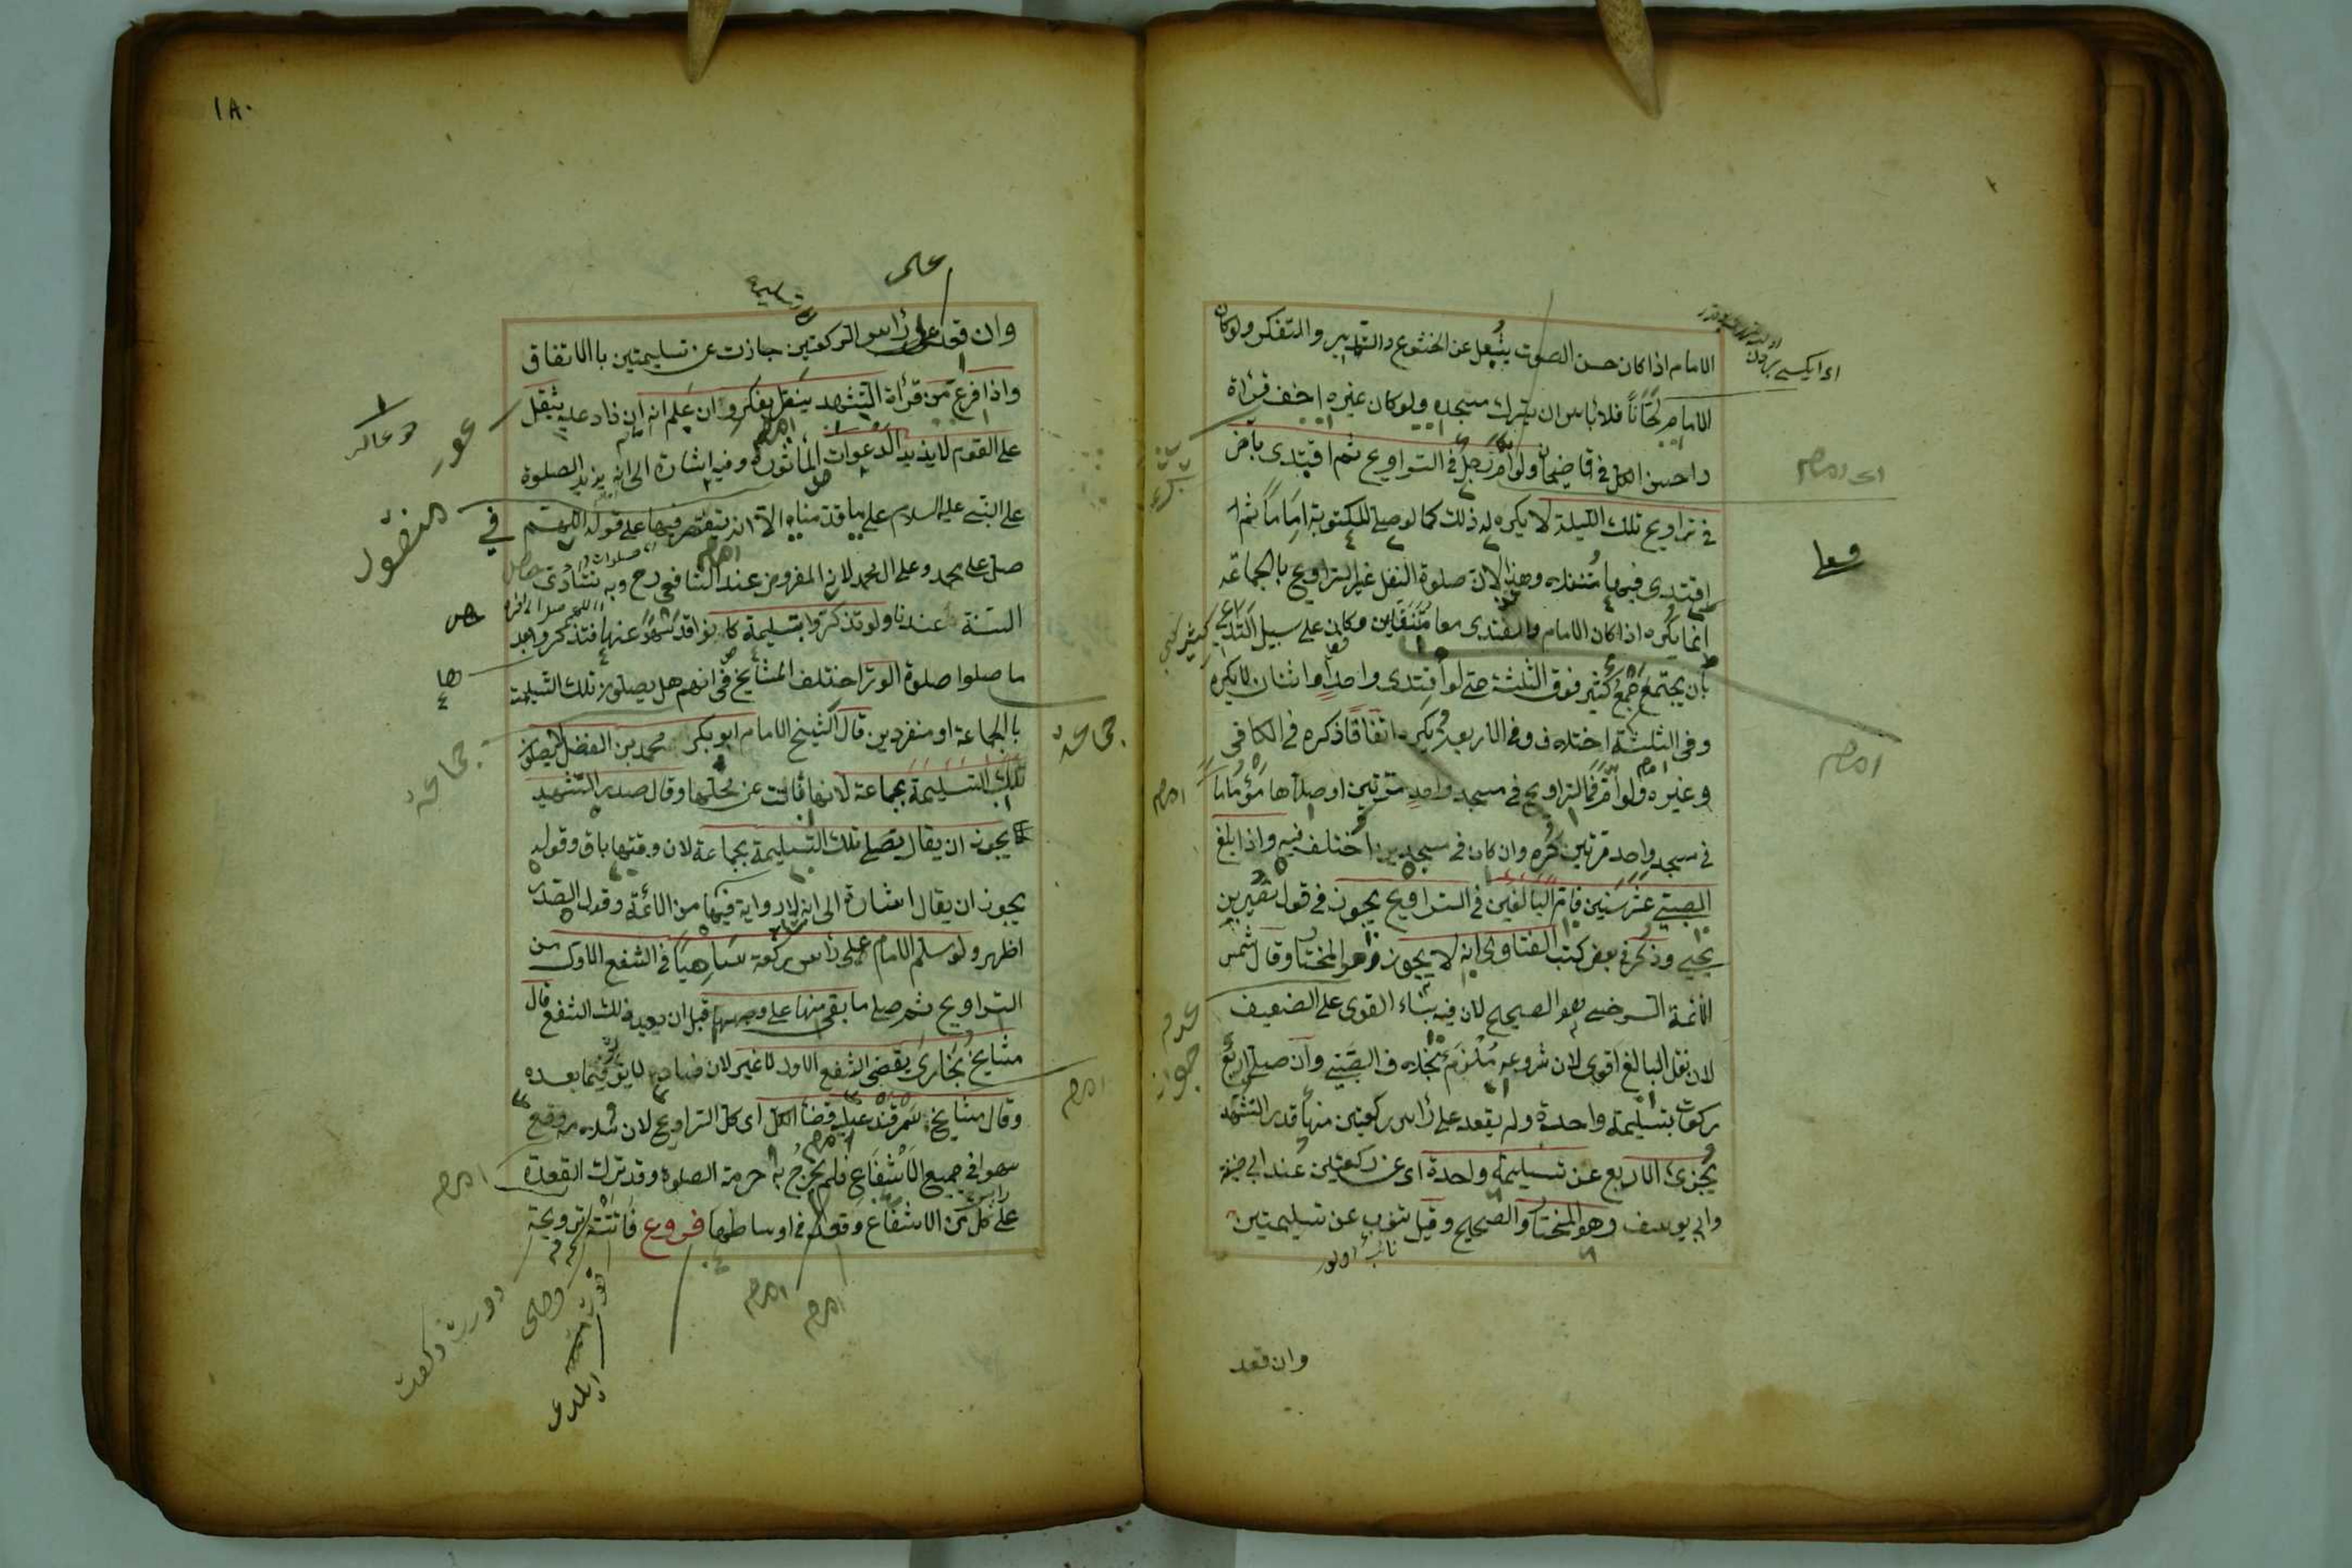 الامام اذا كان حسن الصوت يشغل عن الخشوع والتدبير والتفكر ولو كان
الامام لحانا فلا بأس ان يترك مسجده ولو كان غيره اخف قرأة
واحسن الكل في قاضيخان ولو ام رجل في التراويح ثم اقتدى بآخر
في تراويح تلك الليلة لا يكره له ذلك كما لو صلى المكتوبة اماما ثم
اقتدى فيها متنفلا وهذا لان صلوة النفل غير التراويح بالجماعة
انما يكره اذا كان الامام والمقتدى معا متنفلين وكان على سبيل التداعى
بان يجتمع جمع كثير فوق الثلثة حتى لو اقتدى واحد او اثنان لا يكره
وفى الثلثة اختلاف وفى الاربعة يكره اتفاقا ذكره فى الكافى
وغيره ولو ام فى التراويح فى مسجد واحد مرتين او صلاها مؤتما
فى مسجد واحد مرتين كره وان كان فى مسجدين اختلف فيه واذا بلغ
الصبى عشر سنين فام البالغين فى التراويح يجوز فى قول نصير بن
يحيى وذكر فى بعض كتب الفتاوى انه لا يجوز وهو المختار وقال شمس
الائمة السرخسى هو الصحيح لان فيه بناء القوى على الضعيف
لان نفل البالغ اقوى لان شروعه ملزم بخلاف الصبى وان صلى اربع
ركعات بتسليمة واحدة ولم يقعد على رأس ركعتين منها قدر التشهد
يجزئ الاربع عن تسليمة واحدة اى عن ركعتين عند ابى حنيفة
وابى يوسف وهو المختار والصحيح وقيل تنوب عن تسليمتين
وان قعد
اى امام
امام
امام
عدم
جواز
١٨٠
وان قعد على رأس الركعتين جازت عن تسليمتين بالاتفاق
واذا فرغ من قرأة التشهد ينظر يفكر وان علم انه ان زاد عليه يثقل
على القوم لا يزيد الدعوات المأثورة وفيه اشارة الى انه يزيد الصلوة
على النبى عليه السلام على ما قدمناه الا ان يقتصر فيها على قوله اللهم
صل على محمد وعلى آل محمد لان المفروض عند الشافعى رح وبه تتأدى
السنة عندنا ولو تذكروا تسليمة كانوا قد سهوا عنها فتذكروا بعد
ما صلوا صلوة الوتر اختلف المشايخ فى انهم هل يصلون تلك التسليمة
بالجماعة او منفردين قال الشيخ الامام ابو بكر محمد بن الفضل لا يصلون
تلك التسليمة بجماعة لانها فاتت عن محلها وقال صدر الشهيد
يجوز ان يقال يصلى تلك التسليمة بجماعة لان وقتها باق وقوله
يجوز ان يقال اشارة الى انه لا رواية فيها من الائمة وقول الصدر
اظهر ولو سلم الامام على رأس ركعة ساهيا فى الشفع الاول من
التراويح ثم صلى ما بقى منها على وجهها قبل ان يعيد ذلك الشفع قال
مشايخ بخارى يقضى الشفع الاول لا غير لان فساده لا يؤثر فيما بعده
وقال مشايخ سمرقند عليه قضاء الكل اى كل التراويح لان سلامه وقع
سهوا فى جميع الاشفاع فلم يخرج به حرمة الصلوة وقد ترك القعدة
على كل من الاشفاع وقعد فى اوساطها فروع فاتته ترويحة
جماعة
جماعة
امام
امام
امام
امام
دورت ركعت